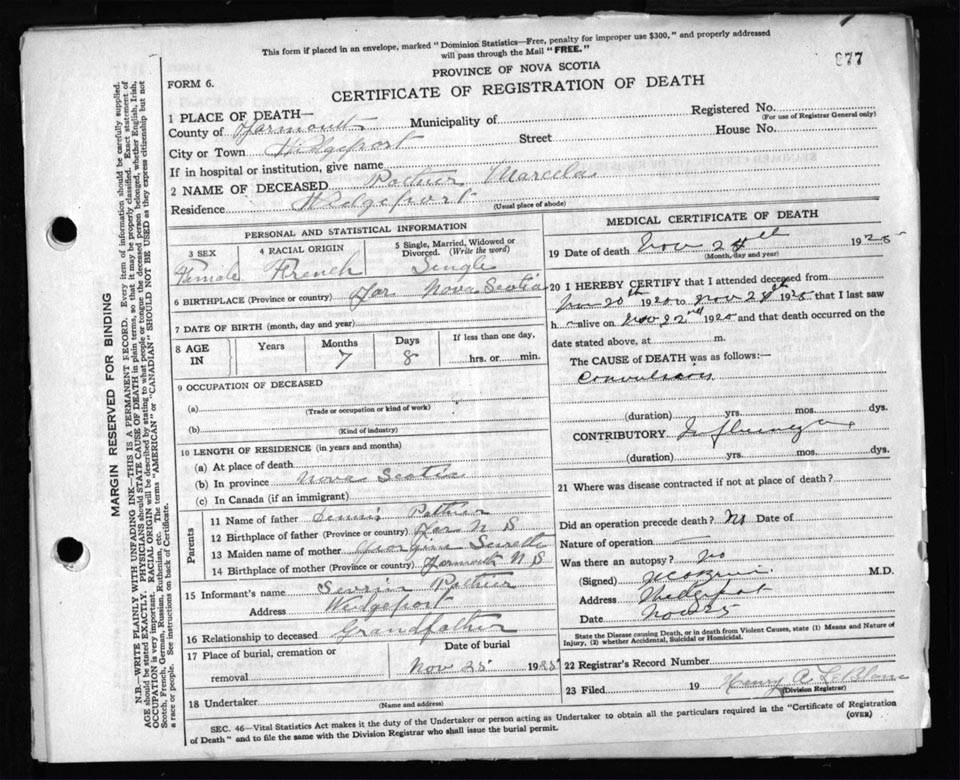 This form if placed in an envelope, marked "Dominion Statistics—Free, penalty for improper use $300," and properly addressed
will pass through the Mail "FREE."
877
PROVINCE OF NOVA SCOTIA
FORM 6.
CERTIFICATE OF REGISTRATION OF DEATH
1 PLACE OF DEATH—
Registered No.
(For use of Registrar General only)
County of Yarmouth Municipality of
City or Town Wedgeport Street House No.
If in hospital or institution, give name
2 NAME OF DECEASED Pothier Marcela
Residence Wedgeport
(Usual place of abode)
PERSONAL AND STATISTICAL INFORMATION
3 SEX
Female
4 RACIAL ORIGIN
French
5 Single, Married, Widowed or
Divorced. (Write the word)
Single
6 BIRTHPLACE (Province or country) Yar Nova Scotia
7 DATE OF BIRTH (month, day and year)
8 AGE IN Years Months 7 Days 8 If less than one day,
hrs. or min.
9 OCCUPATION OF DECEASED
(a)
(Trade or occupation or kind of work)
(b)
(Kind of industry)
10 LENGTH OF RESIDENCE (in years and months)
(a) At place of death
(b) In province Nova Scotia
(c) In Canada (if an immigrant)
Parents
11 Name of father Dennis Pothier
12 Birthplace of father (Province or country) Yar N S
13 Maiden name of mother Surette
14 Birthplace of mother (Province or country) Yarmouth N S
15 Informant's name Pothier
Address Wedgeport
16 Relationship to deceased Grandfather
17 Place of burial, cremation or
removal
Date of burial
Nov 25 1925
18 Undertaker
(Name and address)
MEDICAL CERTIFICATE OF DEATH
19 Date of death Nov 24th 1925
(Month, day and year)
20 I HEREBY CERTIFY that I attended deceased from
Nov 20th 1925 to Nov 24th 1925 that I last saw
h alive on Nov 22nd 1925 and that death occurred on the
date stated above, at m.
The CAUSE of DEATH was as follows:—
Convulsions
(duration) yrs. mos. dys.
CONTRIBUTORY Influenza
(duration) yrs. mos. dys.
21 Where was disease contracted if not at place of death?
Did an operation precede death? No Date of
Nature of operation —
Was there an autopsy? No
(Signed) M.D.
Address Wedgeport
Date Nov 25
State the Disease causing Death, or in death from Violent Causes, state (1) Means and Nature of
Injury, (2) whether Accidental, Suicidal or Homicidal.
22 Registrar's Record Number
23 Filed 19 Henry A LeBlanc
(Division Registrar)
SEC. 46—Vital Statistics Act makes it the duty of the Undertaker or person acting as Undertaker to obtain all the particulars required in the "Certificate of Registration
of Death" and to file the same with the Division Registrar who shall issue the burial permit.
(OVER)
MARGIN RESERVED FOR BINDING
N.B.—WRITE PLAINLY WITH UNFADING INK—THIS IS A PERMANENT RECORD. Every item of information should be carefully supplied.
AGE should be stated EXACTLY. PHYSICIANS should STATE CAUSE OF DEATH in plain terms, so that it may be properly classified. Exact statement of
OCCUPATION is very important. RACIAL ORIGIN will be described by stating to what people or tongue the deceased person belonged, whether English, Irish,
Scotch, French, German, Russian, Ruthenian, etc. The terms "AMERICAN" or "CANADIAN" SHOULD NOT BE USED as they express citizenship but not
a race or people. See instructions on back of Certificate.